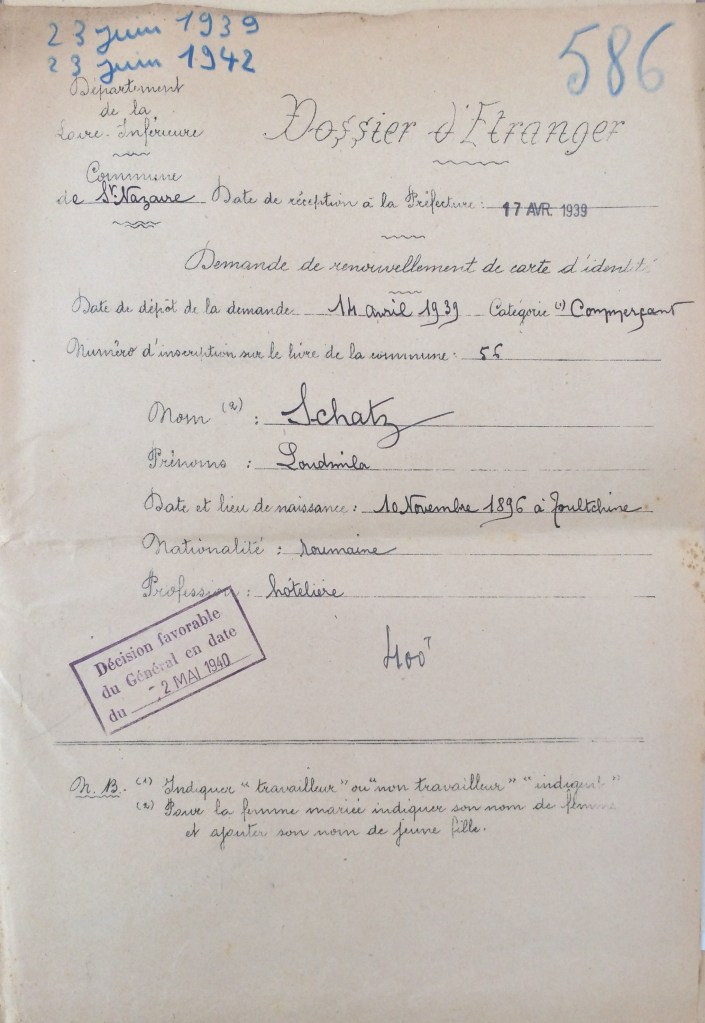 23 juin 1939
23 juin 1942
586
Département
de la
Loire-Inférieure
Dossier d'Etranger
Commune
de St. Nazaire
Date de réception à la Préfecture : 17 AVR. 1939
Demande de renouvellement de carte d'identité
Date de dépôt de la demande 14 avril 1939 Catégorie (1) Commerçant
Numéro d'inscription sur le livre de la commune : 56
Nom (2) : Schatz
Prénoms : Loudmila
Date et lieu de naissance : 10 Novembre 1896 à Toultchine
Nationalité : roumaine
Profession : hôtelière
Décision favorable
du Général en date
du - 2 MAI 1940
400
N.B. - (1) Indiquer "travailleur" ou "non travailleur" "indigent"
(2) Pour la femme mariée indiquer son nom de femme
et ajouter son nom de jeune fille.